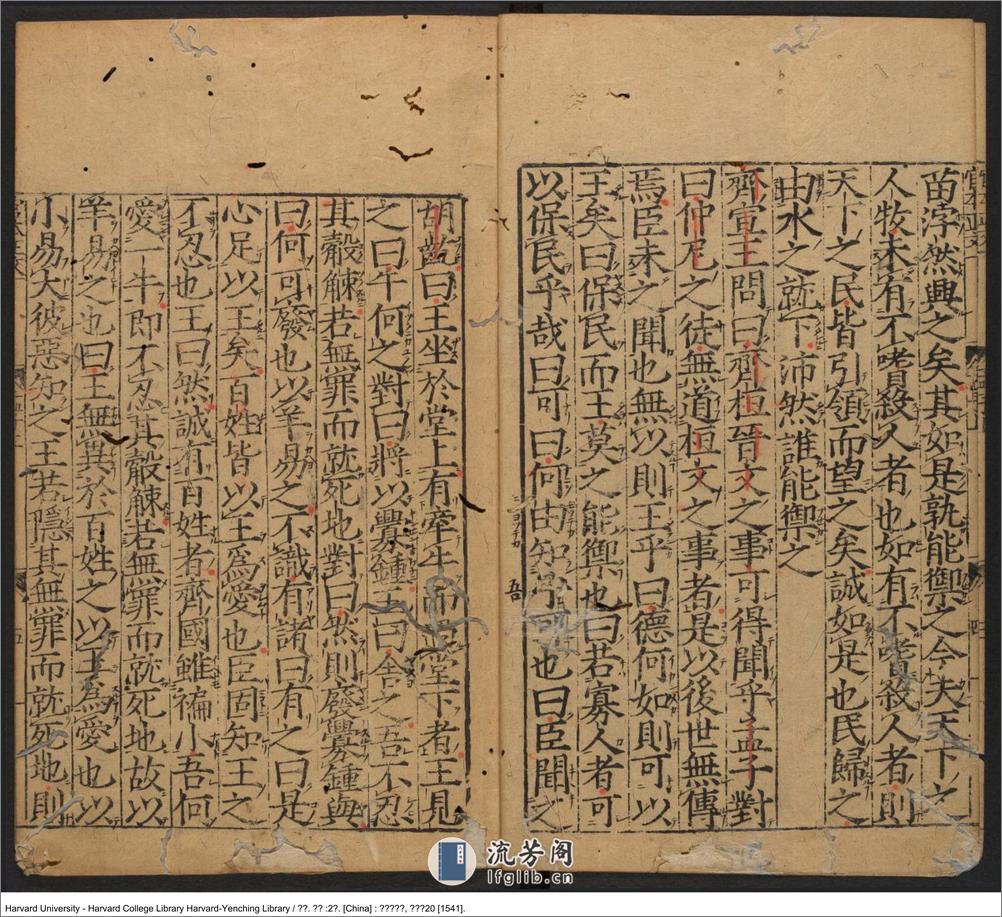 苗浡然興之矣其如是孰能禦之今夫天下之
人牧未有不嗜殺人者也如有不嗜殺人者則
天下之民皆引領而望之矣誠如是也民歸之
由水之就下沛然誰能禦之
齊宣王問曰齊桓晉文之事可得聞乎孟子對
曰仲尼之徒無道桓文之事者是以後世無傳
焉臣未之聞也無以則王乎曰德何如則可以
王矣曰保民而王莫之能禦也曰若寡人者可
以保民乎哉曰可曰何由知吾可也曰臣聞之
吾
胡齕曰王坐於堂上有牽牛而過堂下者王見
之曰牛何之對曰將以釁鍾王曰舍之吾不忍
其觳觫若無罪而就死地對曰然則廢釁鍾與
曰何可廢也以羊易之不識有諸曰有之曰是
心足以王矣百姓皆以王爲愛也臣固知王之
不忍也王曰然誠有百姓者齊國雖褊小吾何
愛一牛即不忍其觳觫若無罪而就死地故以
羊易之也曰王無異於百姓之以王爲愛也以
小易大彼惡知之王若隱其無罪而就死地則
流芳阁
lfglib.cn
Harvard University - Harvard College Library Harvard-Yenching Library / ??. ?? :2?. [China] : ?????, ???20 [1541].